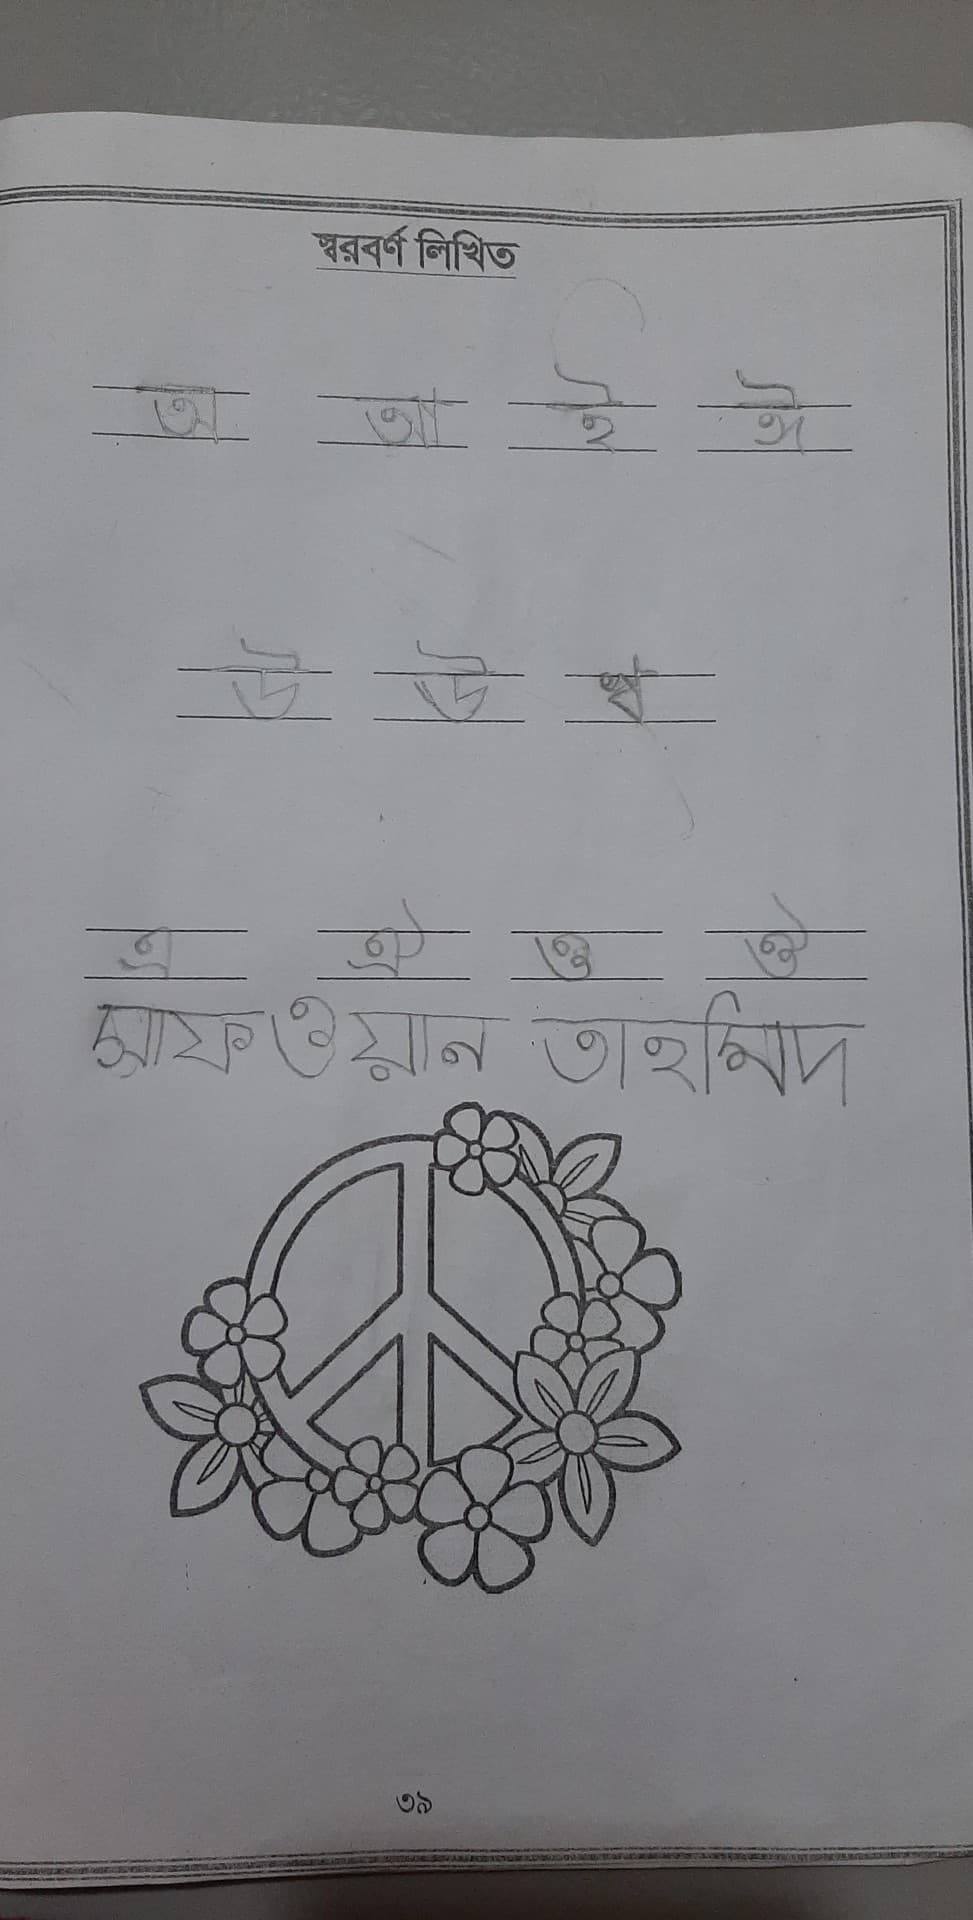 স্বরবর্ণ লিখিত
অ আ ই ঈ
উ উ ঋ
এ ঐ ও ঔ
সাফওয়ান তাহমিদ
৩৯